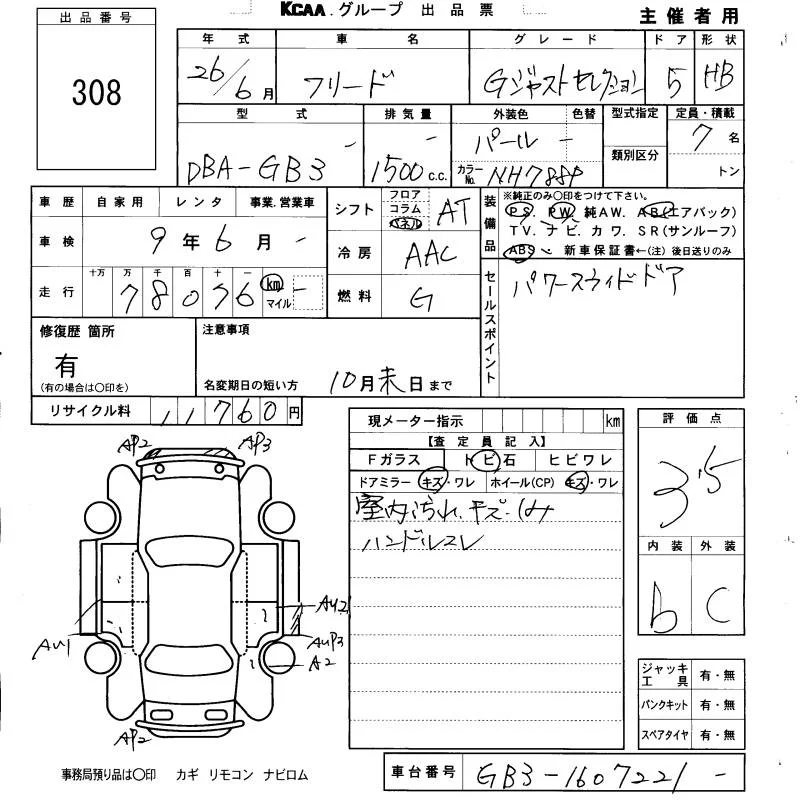 KCAA.グループ 出品票
主催者用
出品番号
308
年式 車名 グレード ドア 形状
26/6月 フリード Gジャストセレクション 5 HB
型式 排気量 外装色 色替 型式指定 定員・積載
DBA-GB3 - 1500c.c. - パール - 類別区分 7名
カラーNo. NH788P トン
車歴 自家用 レンタ 事業.営業車
シフト フロア コラム パネル AT
装備品 ※純正のみ〇印をつけて下さい。
PS. PW. 純AW. AB(エアバック)
TV. ナビ. カワ. SR(サンルーフ)
ABS 新車保証書←(注)後日送りのみ
車検 9年6月 -
冷房 AAC
走行 十万 万 千 百 十 一
78076 km マイル -
燃料 G
セールスポイント パワースライドドア
修復歴 箇所
有
(有の場合は〇印を)
注意事項
名変期日の短い方 10月末日まで
リサイクル料 11760円
現メーター指示 km
【査定員記入】
Fガラス トビ石 ヒビワレ
ドアミラー キズ・ワレ ホイール(CP) キズ・ワレ
室内汚れ.キズ.しみ
ハンドルスレ
評価点
3.5
内装 外装
b C
AP2 AP3
AU2
AU1
AUP3
A2
AP2
ジャッキ工具 有・無
パンクキット 有・無
スペアタイヤ 有・無
事務局預り品は〇印 カギ リモコン ナビロム
車台番号 GB3-1607221 -